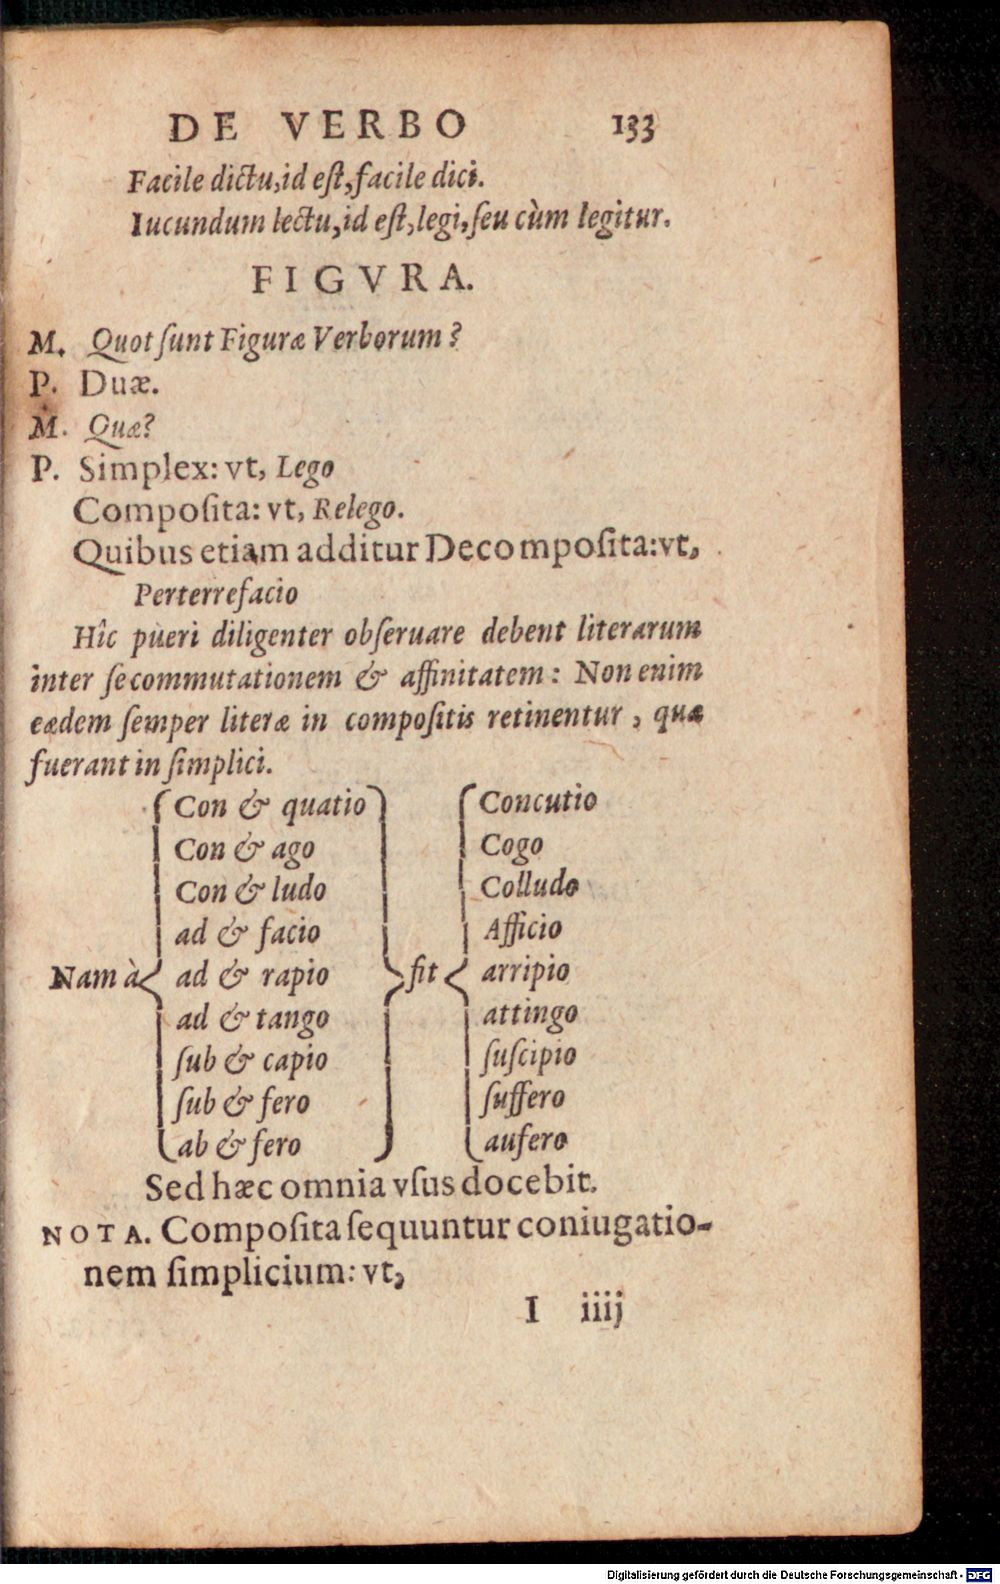 DE VERBO 133
Facile dictu, id eſt, facile dici.
Iucundum lectu, id eſt, legi, ſeu cùm legitur.
FIGVRA.
M. Quot ſunt Figuræ Verborum?
P. Duæ.
M. Quæ?
P. Simplex: vt, Lego
Compoſita: vt, Relego.
Quibus etiam additur Decompoſita: vt,
Perterrefacio
Hîc pueri diligenter obſeruare debent literarum
inter ſe commutationem & affinitatem: Non enim
eædem ſemper literæ in compoſitis retinentur, quæ
fuerant in ſimplici.
Con & quatio Concutio
Con & ago Cogo
Con & ludo Colludo
ad & facio Afficio
Nam à ad & rapio fit arripio
ad & tango attingo
ſub & capio ſuſcipio
ſub & fero ſuffero
ab & fero aufero
Sed hæc omnia vſus docebit.
NOTA. Compoſita ſequuntur coniugatio-
nem ſimplicium: vt,
I iiij
Digitalisierung gefördert durch die Deutsche Forschungsgemeinschaft - DFG